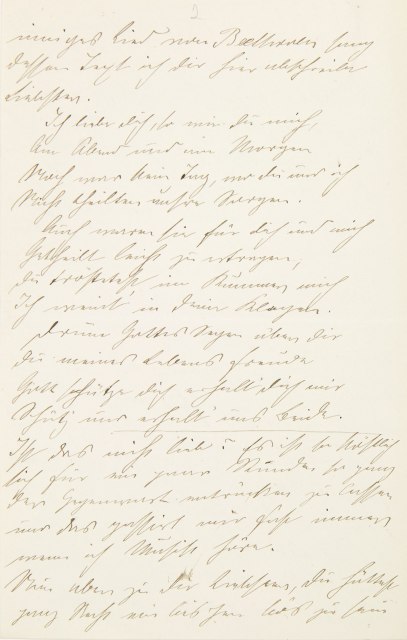 2
inniges Lied von Beethoven sang
dessen Text ich dir hier abschreibe
Liebster.
Ich liebe dich, so wie du mich,
Am Abend und am Morgen
Noch war kein Tag, wo du und ich
Nicht theilten unsre Sorgen.
Auch waren sie für dich und mich
Getheilt leicht zu ertragen,
Du tröstetest im Kummer mich
Ich weint in deine Klagen.
Drum Gottes Segen über dir
Du meines Lebens Freude
Gott schütze dich erhalt dich mir
Schütz und erhalt uns beide.
Ist das nicht lieb? Es ist so köstlich
sich für ein paar Stunden so ganz
der Gegenwart entrücken zu lassen
und das passirt mir fast immer
wenn ich Musik höre.
Nun aber zu der Liebsten, du hattest
ganz Recht ein bischen bös zu sein